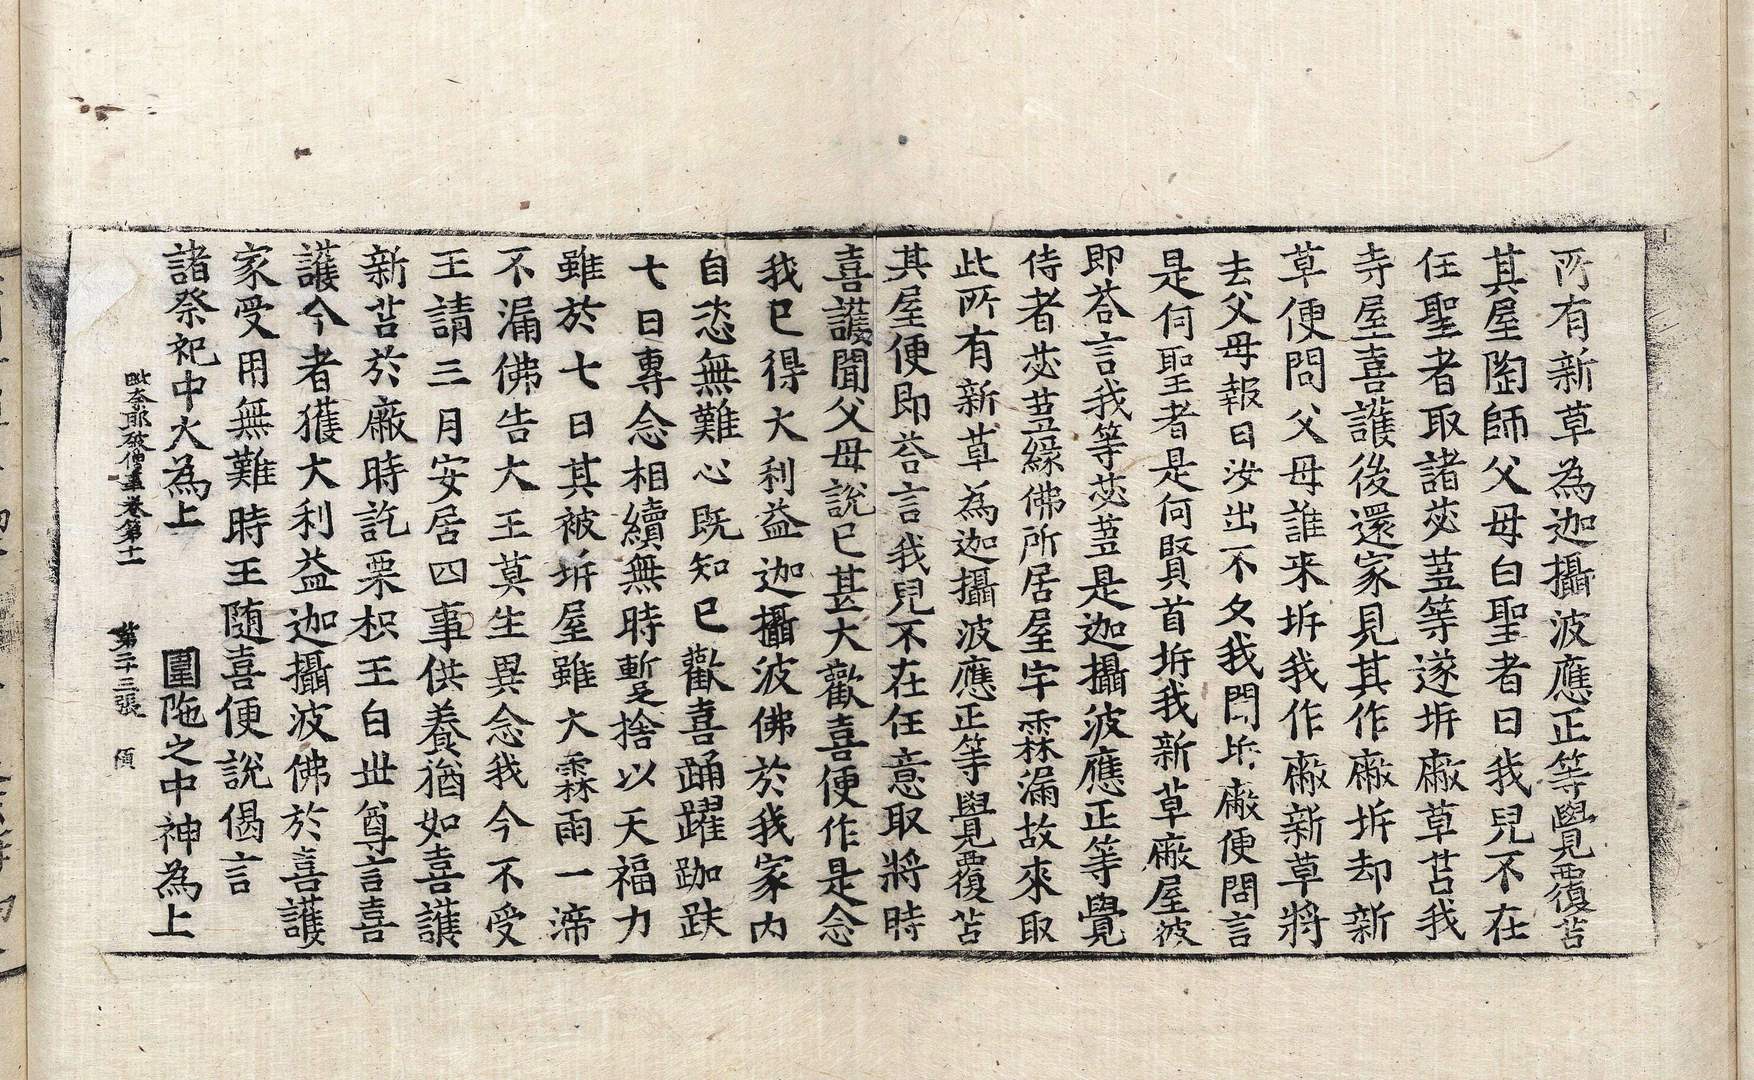 所有新草為迦攝波應正等覺覆苫
其屋陶師父母白聖者曰我兒不在
任聖者取諸苾蒭等遂坼廠草苫我
寺屋喜護後還家見其作廠坼却新
草便問父母誰来坼我作廠新草將
去父母報曰汝出不久我問坼廠便問言
是何聖者是何賢首坼我新草廠屋彼
即荅言我等苾蒭是迦攝波應正等覺
侍者苾蒭緣佛所居屋宇霖漏故來取
此所有新草為迦攝波應正等覺覆苫
其屋便即荅言我兒不在任意取將時
喜護聞父母說已甚大歡喜便作是念
我已得大利益迦攝波佛於我家內
自恣無難心既知已歡喜踊躍跏趺
七日專念相續無時蹔捨以天福力
雖於七日其被坼屋雖大霖雨一渧
不漏佛告大王莫生異念我今不受
王請三月安居四事供養猶如喜護
新苫於廠時訖栗枳王白世尊言喜
護今者獲大利益迦攝波佛於喜護
家受用無難時王隨喜便說偈言
諸祭祀中火為上 圍陁之中神為上
毗奈耶破僧事卷第十一 第二十三張 傾